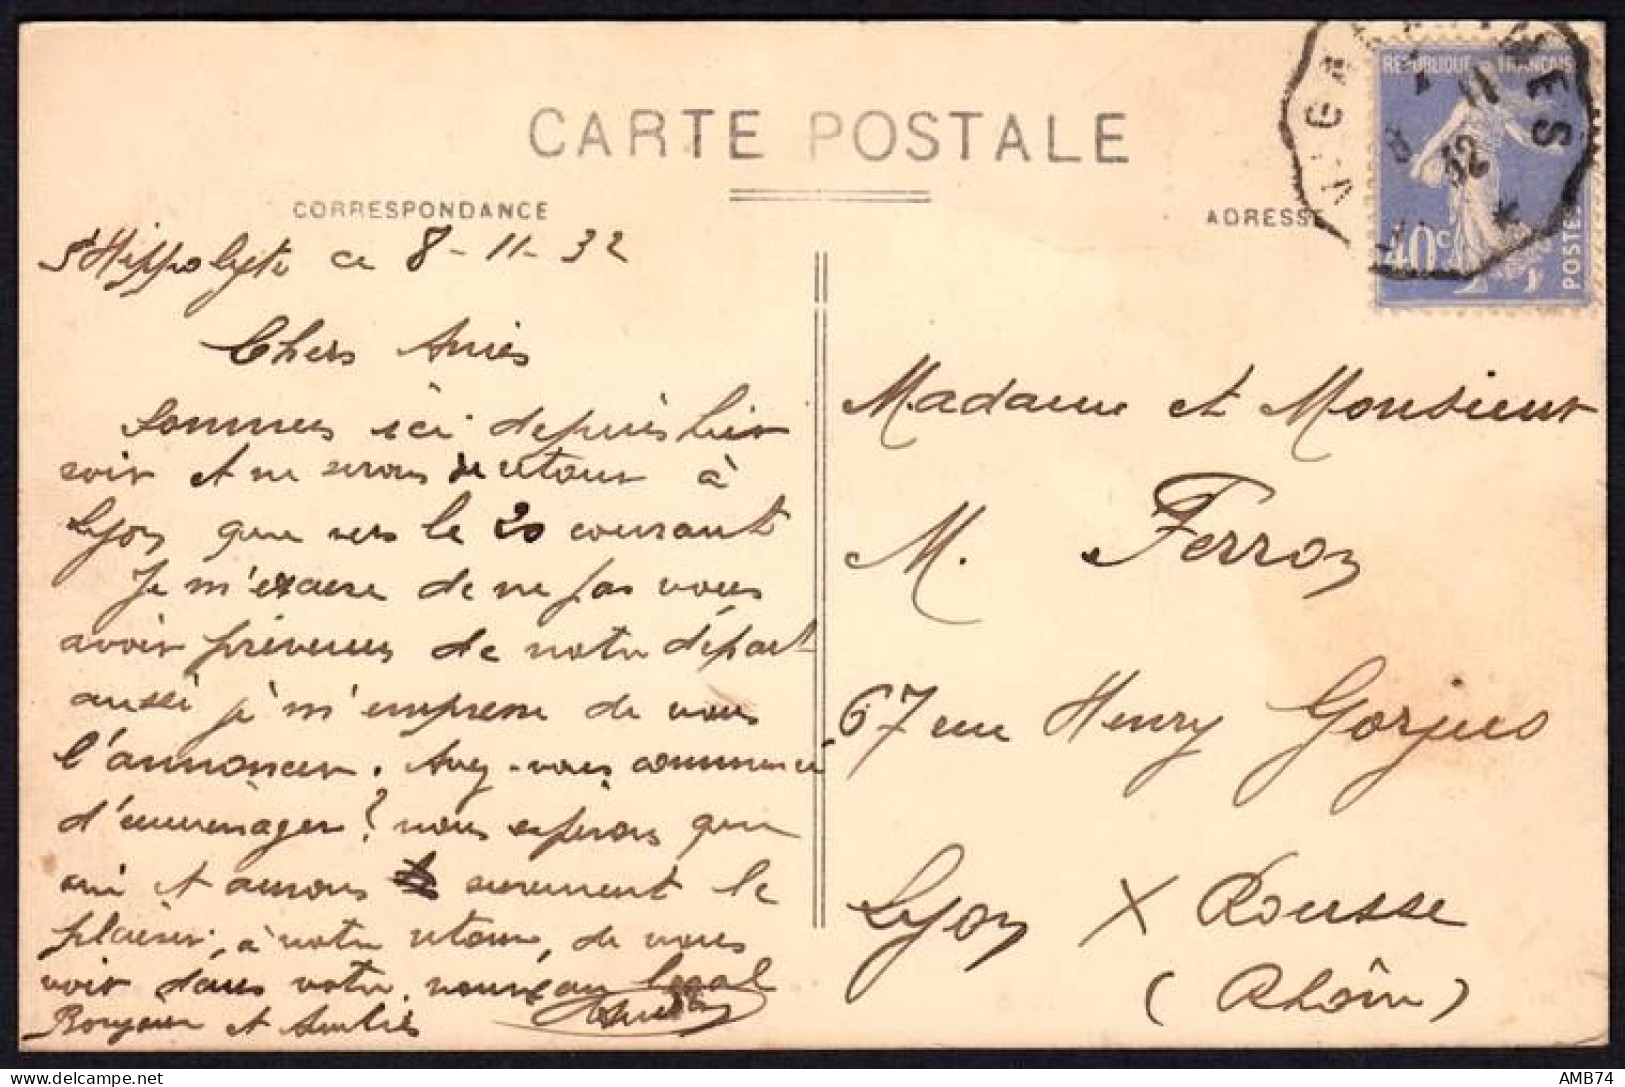 CARTE POSTALE
CORRESPONDANCE
ADRESSE
REPUBLIQUE FRANÇAISE
40c
POSTES
St Hippolyte ce 8-11-32
Chers Amis
Sommes ici depuis hier
soir et ne serons de retour à
Lyon que vers le 20 courant
Je m'excuse de ne pas vous
avoir prévenus de notre départ
aussi je m'empresse de vous
l'annoncer. Avez-vous commencé
d'emménager? nous espérons que
oui et aurons surement le
plaisir, à notre retour, de vous
voir dans votre nouveau local
Bonjour et Amitiés
Madame et Monsieur
M. Ferron
67 rue Henry Gorjus
Lyon X Rousse
(Rhône)
AMB74